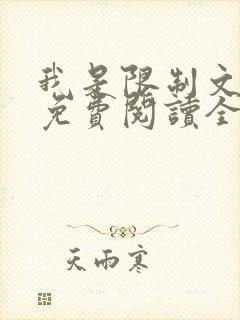 我是限制文
免費閱讀全
天雨寒